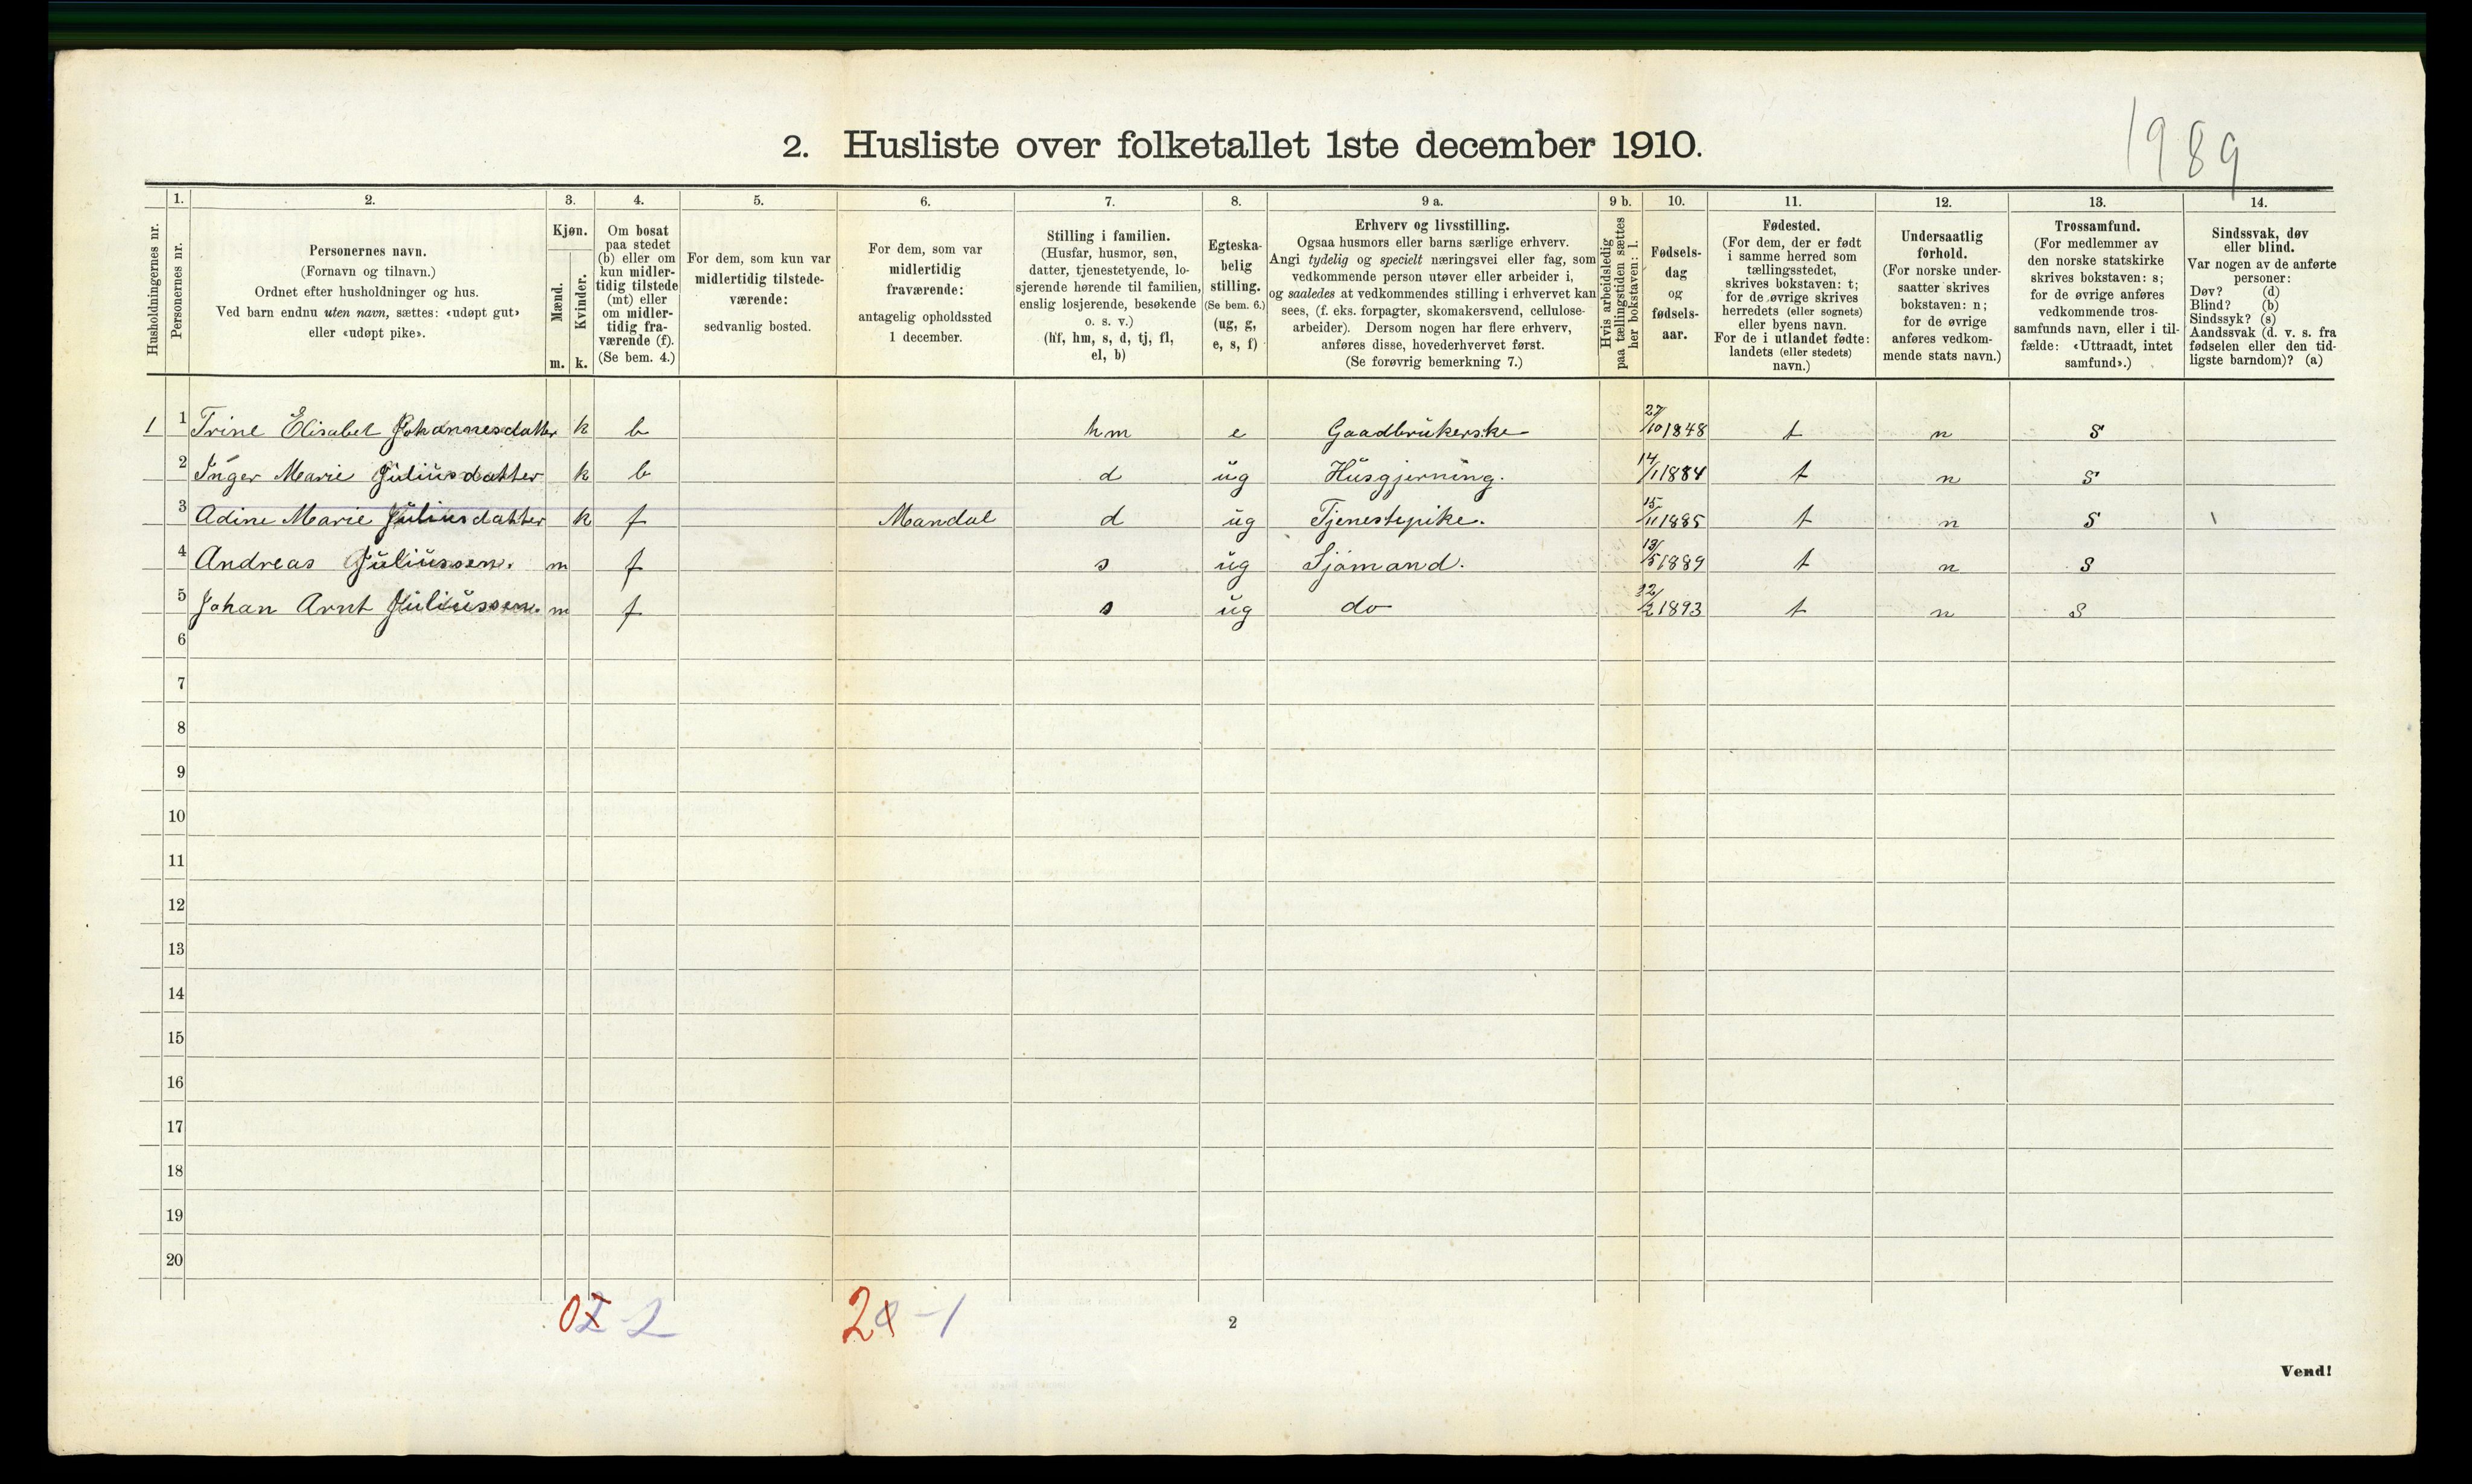 1989
2. Husliste over folketallet 1ste december 1910.
1. 2. 3. 4. 5. 6. 7. 8. 9 a. 9 b. 10. 11. 12. 13. 14.
Husholdningernes nr.
Personernes nr.
Personernes navn.
(Fornavn og tilnavn.)
Ordnet efter husholdninger og hus.
Ved barn endnu uten navn, sættes: «udøpt gut»
eller «udøpt pike».
Kjøn.
Mænd.
Kvinder.
m. k.
Om bosat
paa stedet
(b) eller om
kun midler-
tidig tilstede
(mt) eller
om midler-
tidig fra-
værende (f).
(Se bem. 4.)
For dem, som kun var
midlertidig tilstede-
værende:
sedvanlig bosted.
For dem, som var
midlertidig
fraværende:
antagelig opholdssted
1 december.
Stilling i familien.
(Husfar, husmor, søn,
datter, tjenestetyende, lo-
sjerende hørende til familien,
enslig losjerende, besøkende
o. s. v.)
(hf, hm, s, d, tj, fl,
el, b)
Egteska-
belig
stilling.
(Se bem. 6.)
(ug, g,
e, s, f)
Erhverv og livsstilling.
Ogsaa husmors eller barns særlige erhverv.
Angi tydelig og specielt næringsvei eller fag, som
vedkommende person utøver eller arbeider i,
og saaledes at vedkommendes stilling i erhvervet kan
sees, (f. eks. forpagter, skomakersvend, cellulose-
arbeider). Dersom nogen har flere erhverv,
anføres disse, hovederhvervet først.
(Se forøvrig bemerkning 7.)
Hvis arbeidsledig
paa tællingstiden sættes
her bokstaven: l.
Fødsels-
dag
og
fødsels-
aar.
Fødested.
(For dem, der er født
i samme herred som
tællingsstedet,
skrives bokstaven: t;
for de øvrige skrives
herredets (eller sognets)
eller byens navn.
For de i utlandet fødte:
landets (eller stedets)
navn.)
Undersaatlig
forhold.
(For norske under-
saatter skrives
bokstaven: n;
for de øvrige
anføres vedkom-
mende stats navn.)
Trossamfund.
(For medlemmer av
den norske statskirke
skrives bokstaven: s;
for de øvrige anføres
vedkommende tros-
samfunds navn, eller i til-
fælde: «Uttraadt, intet
samfund».)
Sindssvak, døv
eller blind.
Var nogen av de anførte
personer:
Døv? (d)
Blind? (b)
Sindssyk? (s)
Aandssvak (d. v. s. fra
fødselen eller den tid-
ligste barndom)? (a)
1 1 Trine Elisabet Johannesdatter k b hm e Gaadbrukerske 27/10 1848 t n s
2 Inger Marie Juliusdatter k b d ug Husgjerning. 14/1 1884 t n s
3 Adine Marie Juliusdatter k f Mandal d ug Tjenestepike. 15/11 1885 t n s
4 Andreas Juliussen. m f s ug Sjømand. 13/5 1889 t n s
5 Johan Arnt Juliussen. m f s ug do /2 1893 t n s
6
7
8
9
10
11
12
13
14
15
16
17
18
19
20
2
Vend!